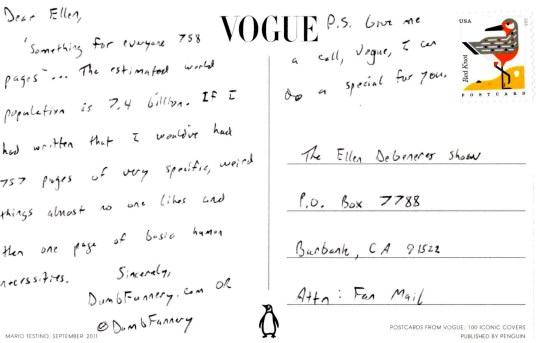 Dear Ellen,
"Something for everyone 758
pages"... The estimated world
population is 7.4 billion. If I
had written that I would've had
757 pages of very specific, weird
things almost no one likes and
then one page of basic human
necessities.
Sincerely,
DumbFunnery.com OR
@DumbFunnery
MARIO TESTINO, SEPTEMBER 2011
VOGUE
P.S. Give me
a call, Vogue, I can
do a special for you.
USA
Red Knot
POSTCARD
The Ellen DeGeneres Show
P.O. Box 7788
Burbank, CA 91522
Attn: Fan Mail
POSTCARDS FROM VOGUE: 100 ICONIC COVERS
PUBLISHED BY PENGUIN